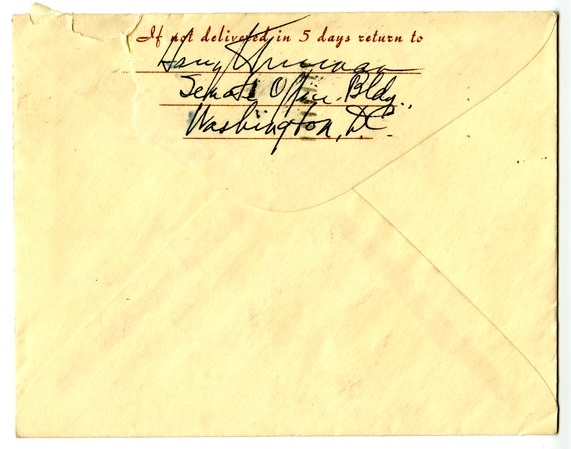 If not delivered in 5 days return to
Harry S Truman
Senate Office Bldg.,
Washington, D.C.